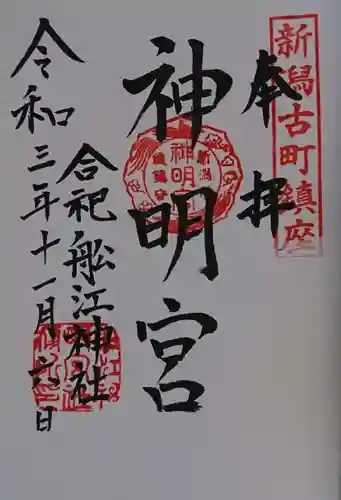 新潟古町鎮座
奉拝
神明宮
神明宮
合祀 船江神社
令和三年十一月六日